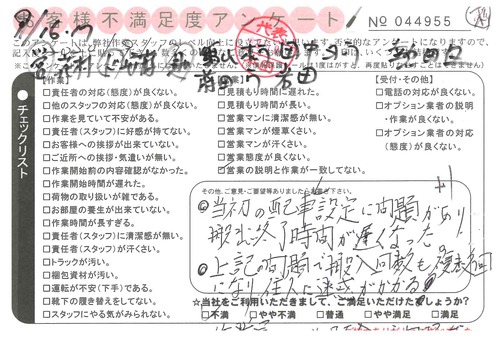 お客様不満足度アンケート
№ 044955
チェックリスト
【作業】
□責任者の対応(態度)が良くない。
□他のスタッフの対応(態度)が良くない。
□作業を見ていて不安がある。
□責任者(スタッフ)に好感が持てない。
□お客様への挨拶が出来ていない。
□ご近所への挨拶・気遣いが無い。
□作業開始前の内容確認がなかった。
□作業開始時間が遅れた。
□荷物の取り扱いが雑である。
□お部屋の養生が出来ていない。
□作業時間が長すぎる。
□責任者(スタッフ)に清潔感が無い。
□責任者(スタッフ)が汗くさい。
□トラックが汚い。
□梱包資材が汚い。
□運転が不安(下手)である。
□靴下の履き替えをしてない。
□スタッフにやる気がみられない。
□見積もり時間に遅れた。
□見積もり時間が長い。
□営業マンに清潔感が無い。
□営業マンが煙草くさい。
□営業マンが汗くさい。
□営業態度が良くない。
□営業の説明と作業が一致してない。
【受付・その他】
□電話の対応が良くない。
□オプション業者の説明
・作業が良くない。
□オプション業者の対応
(態度)が良くない。
その他、ご意見・ご要望等ありましたらお書き下さい。
◎当初の配車設定に問題があり
搬出終了時間が遅くなった
◎上記の問題で搬入回数も複数回
になり住人に迷惑がかかる
☆当社をご利用いただきまして、ご満足いただけたでしょうか？
□不満 □やや不満 □普通 □やや満足 □満足